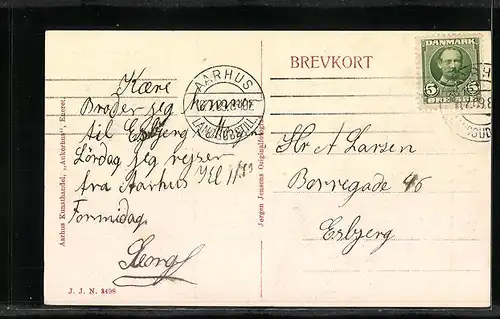 BREVKORT
DANMARK
5 5
ØRE
AARHUS
LANDSUDSTILL
Kære
Broder jeg
til Esbjerg
Lördag jeg rejser
fra Aarhus Kl 11
Formidag.
Georg
Hr A Larsen
Borregade 46
Esbjerg
Aarhus Kunsthandel, „Ankerhus“, Eneret.
Jørgen Jensens Originalfotografi
J. J. N. 3498